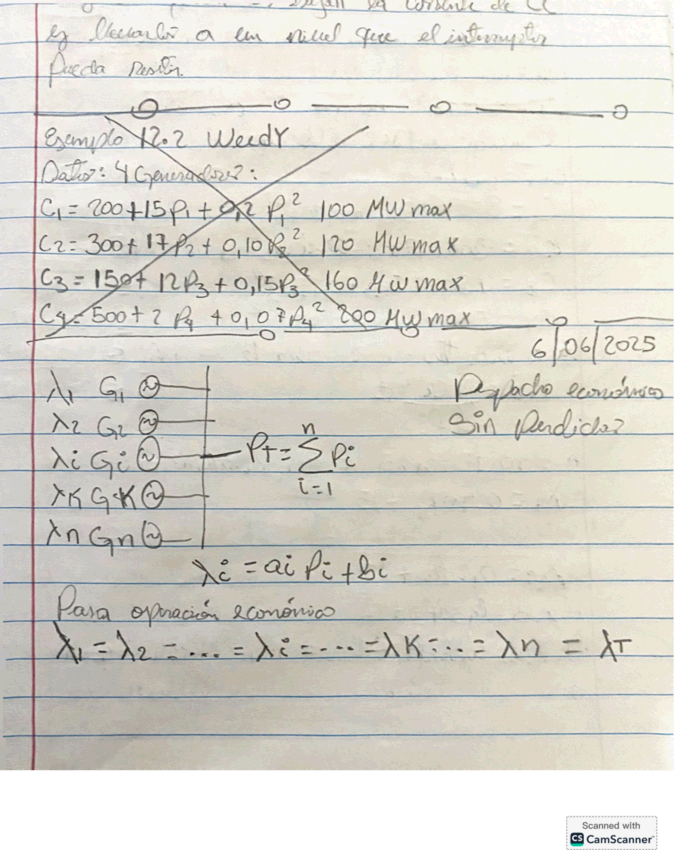 la corriente de CC
es llevarlo a un nivel que el interruptor
Pueda
Ejemplo 12.2 WeedY
Datos: 4 Generadores:
C1 = 200+15P1 + 0,2 P1² 100 MW max
C2 = 300+ 17P2 + 0,10P2² 120 MW max
C3 = 150+ 12P3 + 0,15P3² 160 MW max
C4 = 500+2 P4 + 0,07P4² 200 MW max
6/06/2025
Despacho económico
Sin Perdidas
λ1 G1
λ2 G2
λi Gi
λK GK
λn Gn
PT = Σ Pi
n
i=1
λi = ai Pi + bi
Para operación económico
λ1 = λ2 = .... = λi = .... = λK = ... = λn = λT
Scanned with
CS CamScanner